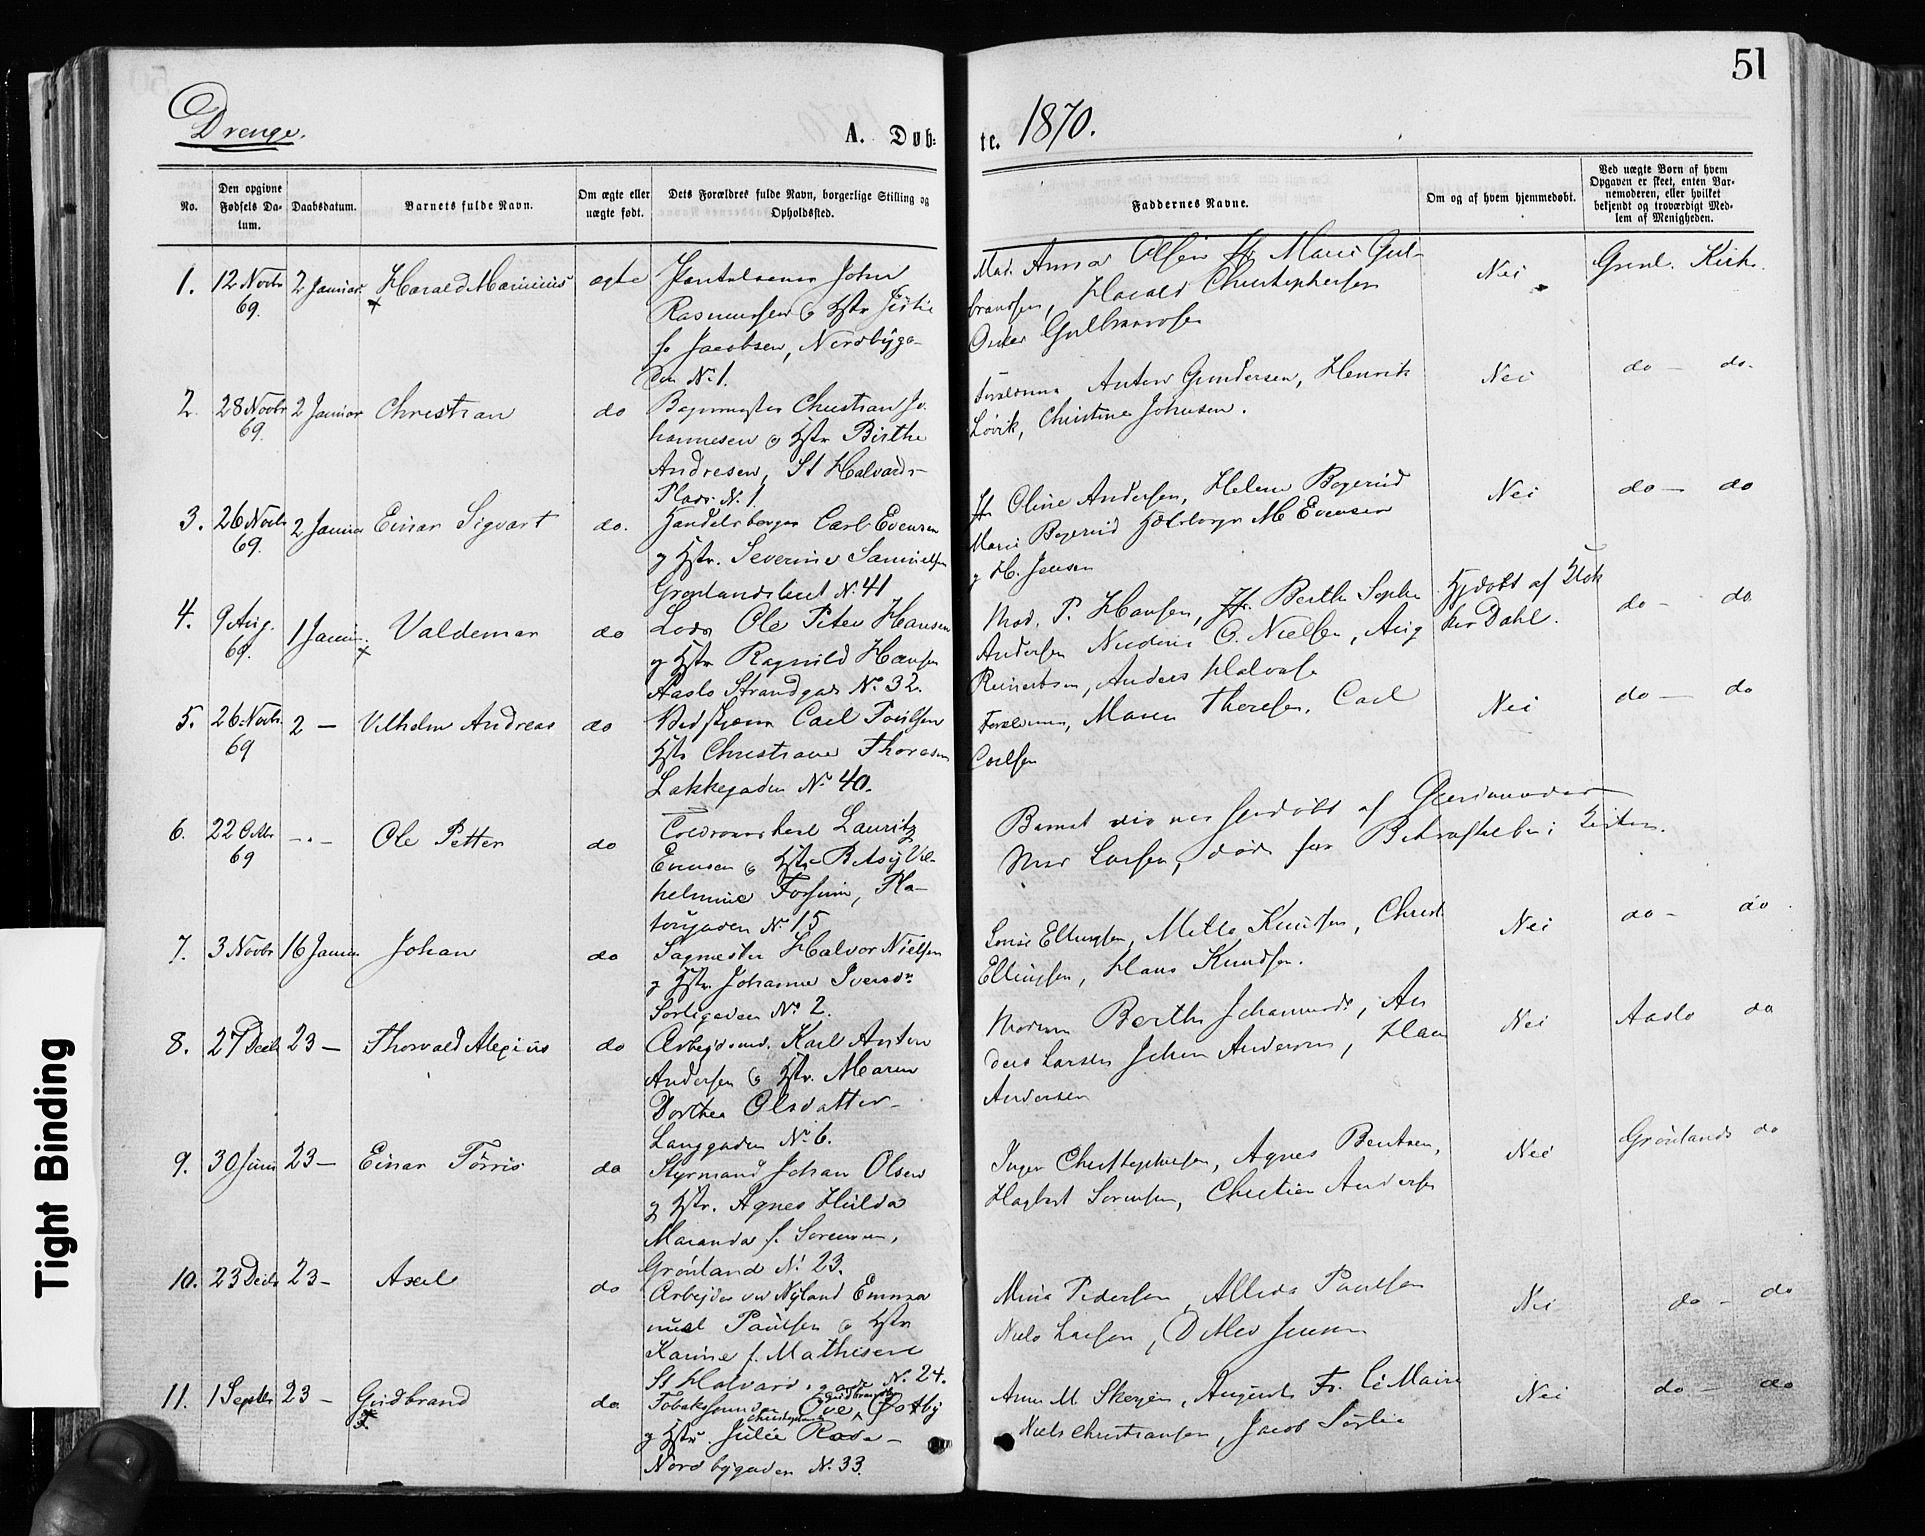 51
Drenge.
A. Døb-
te. 1870.
No.
Den opgivne
Fødsels Da-
tum.
Daabsdatum.
Barnets fulde Navn.
Om ægte eller
uægte født.
Dets Forældres fulde Navn, borgerlige Stilling og
Opholdssted.
Faddernes Navne.
Om og af hvem hjemmedøbt.
Ved uægte Børn af hvem
Opgaven er skeet, enten Bar-
nemoderen, eller hvilket
bekjendt og troværdigt Med-
lem af Menigheden.
1. 12 Novbr 69. 2 Januar. Harald Marinius ægte
John
Rasmussen & Hstr
f. Jacobsen, Nordbyga-
den No 1.
Mad. Anna Olsen Fr. Marie Gul-
brandsen, Harald Christophersen
Gulbrandsen
Nei
Grønl. Kirke.
2. 28 Novbr 69. 2 Januar Christian do
Christian Jo-
hannesen & Hstr Birthe
Andresen, St Halvards-
Plads No 1.
Forældrene Anton Gundersen, Henrik
Løvik, Christine Johnsen.
Nei
do - do-
3. 26 Novbr 69. 2 Januar Einar Sigvart do.
Handelsborger Carl Evensen
og Hstr. Severine Samuelsen
Grønlandsleret No 41
Fr. Oline Andersen, Helene Bogerud
Marie Bogerud M Evensen
og H. Jensen
Nei
do - do
4. 9 Aug. 69. 1 Januar. Valdemar do
Lods Ole Peter Hansen
og Hstr Ragnild Hansen
Aaslo Strandgade No 32.
Mad. P. Hansen, Fr. Berthe Sophie
Andersen O. Nielsen, Aug
Reinertsen, Anders Halvorsen
Hjdøbt af Klok
ker Dahl.
do - do
5. 26 Novbr. 69 2 - Vilhelm Andreas do
Carl Poulsen
Hstr Christiane Thoresen
Lakkegaden No 40.
Forældrene, Maren Thoresen, Carl
Carlsen
Nei
do - do
6. 22 Octbr 69 -"- Ole Petter do
Lauritz
Evensen & Hstr Betsy Vil-
helmine Fossum, Pla-
tougaden No 15
Barnet som var hjdøbt af Gjordemoder
Mad Larsen, døde før Bekræftelse i Kirken.
7. 3 Novbr 16 Januar Johan do
Sagmester Halvor Nielsen
og Hstr. Johanne Iversdr
Sørligaden No 2.
Lovise Ellingsen, Mette Knudsen, Christ.
Ellingsen, Hans Knudsen.
Nei
do - do.
8. 27 Decbr 23 - Thorvald Alexius do
Arbejdsmd. Karl Anton
Andersen & Hstr. Maren
Dorthea Olsdatter-
Langgaden No 6.
Moderen Berthe Johannesd, An
ders Larsen Johan Andersen, Hans
Andersen
Nei
Aaslo do
9. 30 Juni 23 - Einar Tørris do
Styrmand Johan Olsen
og Hstr. Agnes Hulda
Maranda f. Sørensen,
Grønland No 23.
Inger Christophersen, Agnes Bentsen,
Hagbart Sørensen, Christian Andersen
Nei
Grønlands do
10. 23 Decbr 23 - Axel do
Arbejder ved Nyland Emma
nuel Paulsen & Hstr
Karine f. Mathisen
St Halvards gade No. 24.
Mina Pedersen, Alleda Paulsen
Niels Larsen, Ditlev Jensen
Nei
do - do
11. 1 Septbr 23 - Gudbrand do
Gudbrandsen
Tobakksspinder Ove Østby
Christiansen
og Hstr. Julie Rose-
Nordbygaden No. 33.
Anne M Skøyen, August Fr. le Maire
Niels Christiansen, Jacob Sørlie
Nei
do - do
Tight Binding